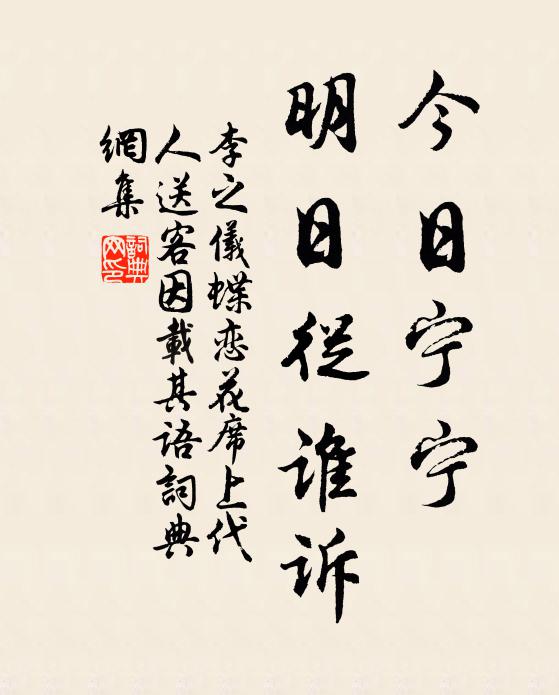 今日宁宁
明日从谁诉
李之儀蝶恋花席上代
人送客因載其語詞典
網集
詞典
网印